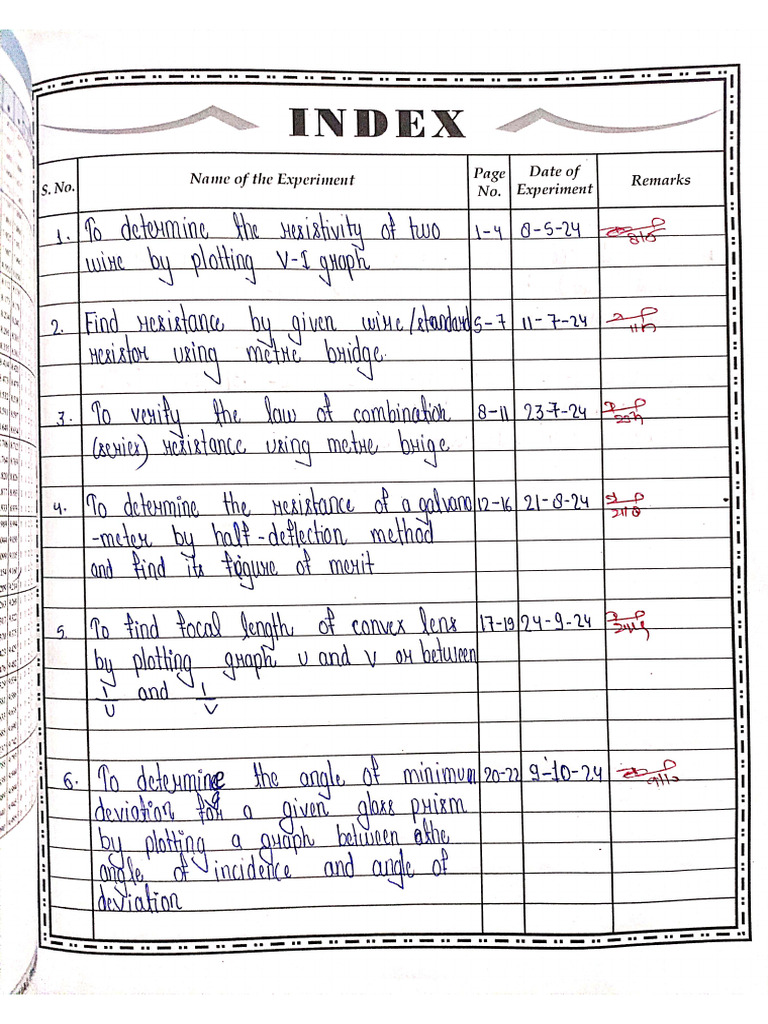 INDEX
S. No. Name of the Experiment Page No. Date of Experiment Remarks
1. To determine the resistivity of two 1-4 8-5-24
wire by plotting V-I graph
2. Find resistance by given wire/standard 5-7 11-7-24
resistor using metre bridge.
3. To verify the law of combination 8-11 23-7-24
(series) resistance using metre brige
4. To determine the resistance of a galvano 12-16 21-8-24
-meter by half-deflection method
and find its figure of merit
5. To find focal length of convex lens 17-19 24-9-24
by plotting graph u and v or between
1/u and 1/v
6. To determine the angle of minimum 20-22 9-10-24
deviation for a given glass prism
by plotting a graph between the
angle of incidence and angle of
deviation